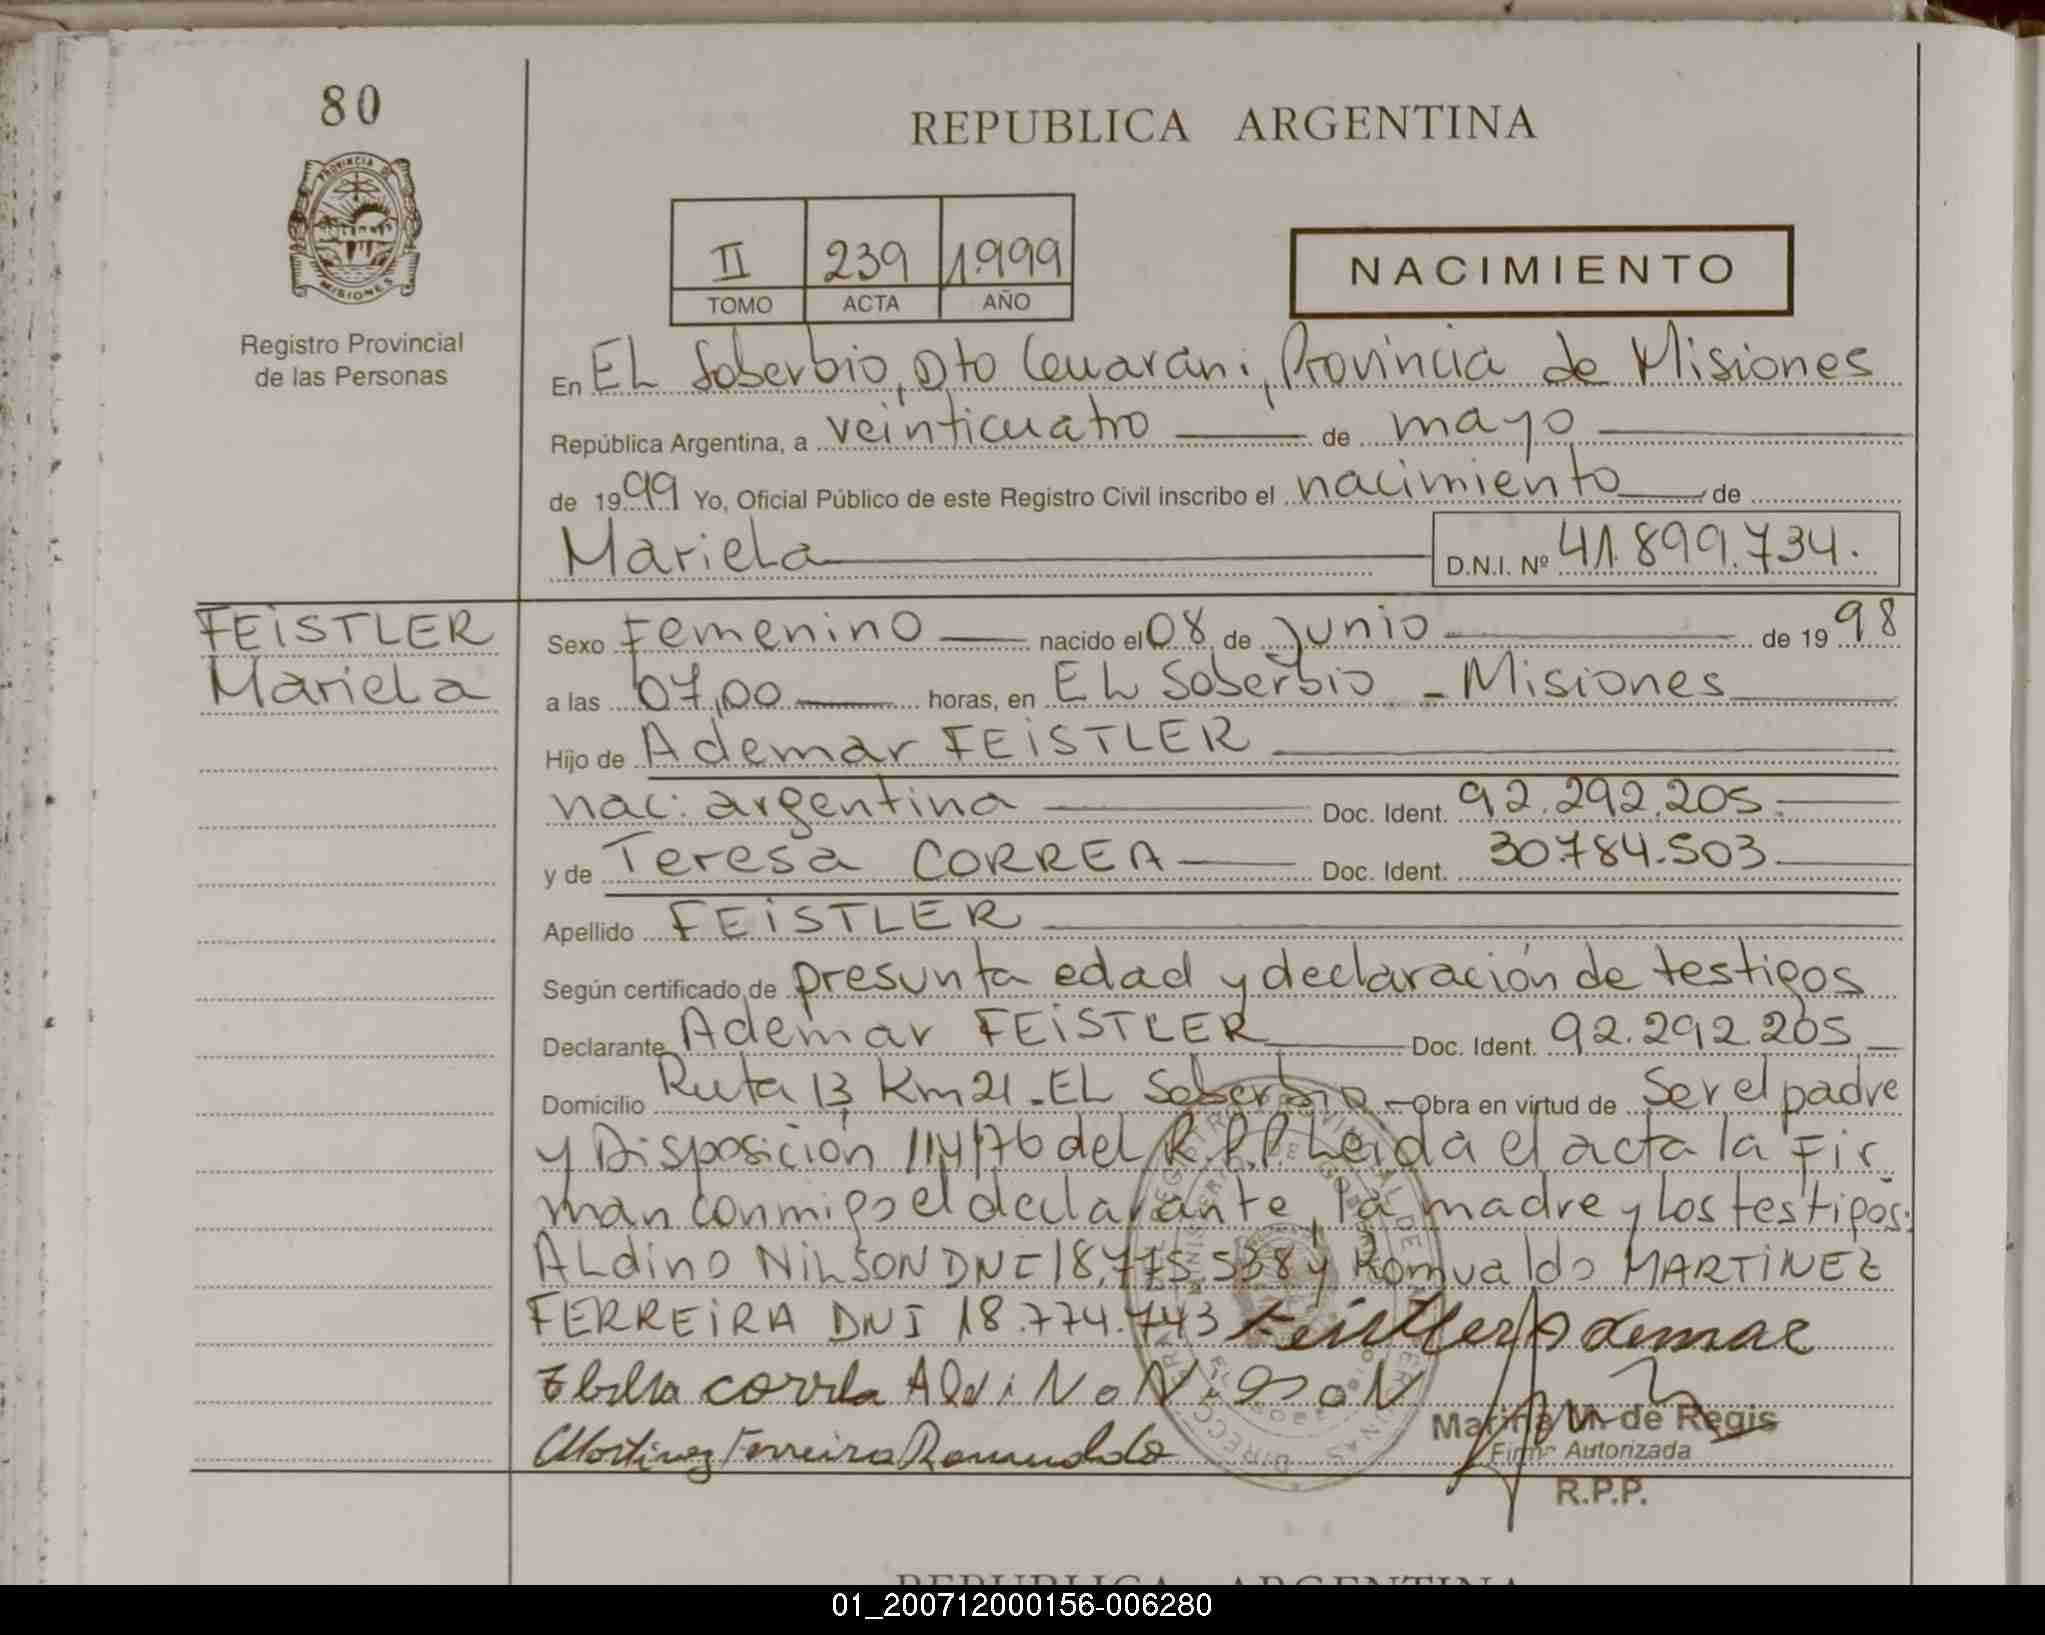 80
REPUBLICA ARGENTINA
PROVINCIA DE
MISIONES
Registro Provincial
de las Personas
II 239 1.999
TOMO ACTA AÑO
NACIMIENTO
En EL Soberbio, Dto Guarani, Provincia de Misiones
República Argentina, a veinticuatro de mayo
de 1999 Yo, Oficial Público de este Registro Civil inscribo el nacimiento de
Mariela D.N.I. Nº 41.899.734.
FEiSTLER
Mariela
Sexo Femenino nacido el 08 de Junio de 1998
a las 07,00 horas, en EL Soberbio - Misiones
Hijo de Ademar FEiSTLER
nac: argentina Doc. Ident. 92.292.205
y de Teresa CORREA Doc. Ident. 30.784.503
Apellido FEiSTLER
Según certificado de presunta edad y declaración de testigos
Declarante Ademar FEiSTLER Doc. Ident. 92.292.205
Domicilio Ruta 13 Km 21 - EL Soberbio - Obra en virtud de Ser el padre
y Disposición 114/76 del R.P.P. Leida el acta la Fir
man conmigo el declarante, la madre y los testigos:
ALdino NiLSON DNI 18.775.538 y Romualdo MARTiNEZ
FERREiRA DNI 18.774.743 Feistler Ademar
correa AldiNo
Martinez Ferreira Romualdo
Marina M. de Regis
Firma Autorizada
R.P.P.
REPUBLICA ARGENTINA
01_200712000156-006280